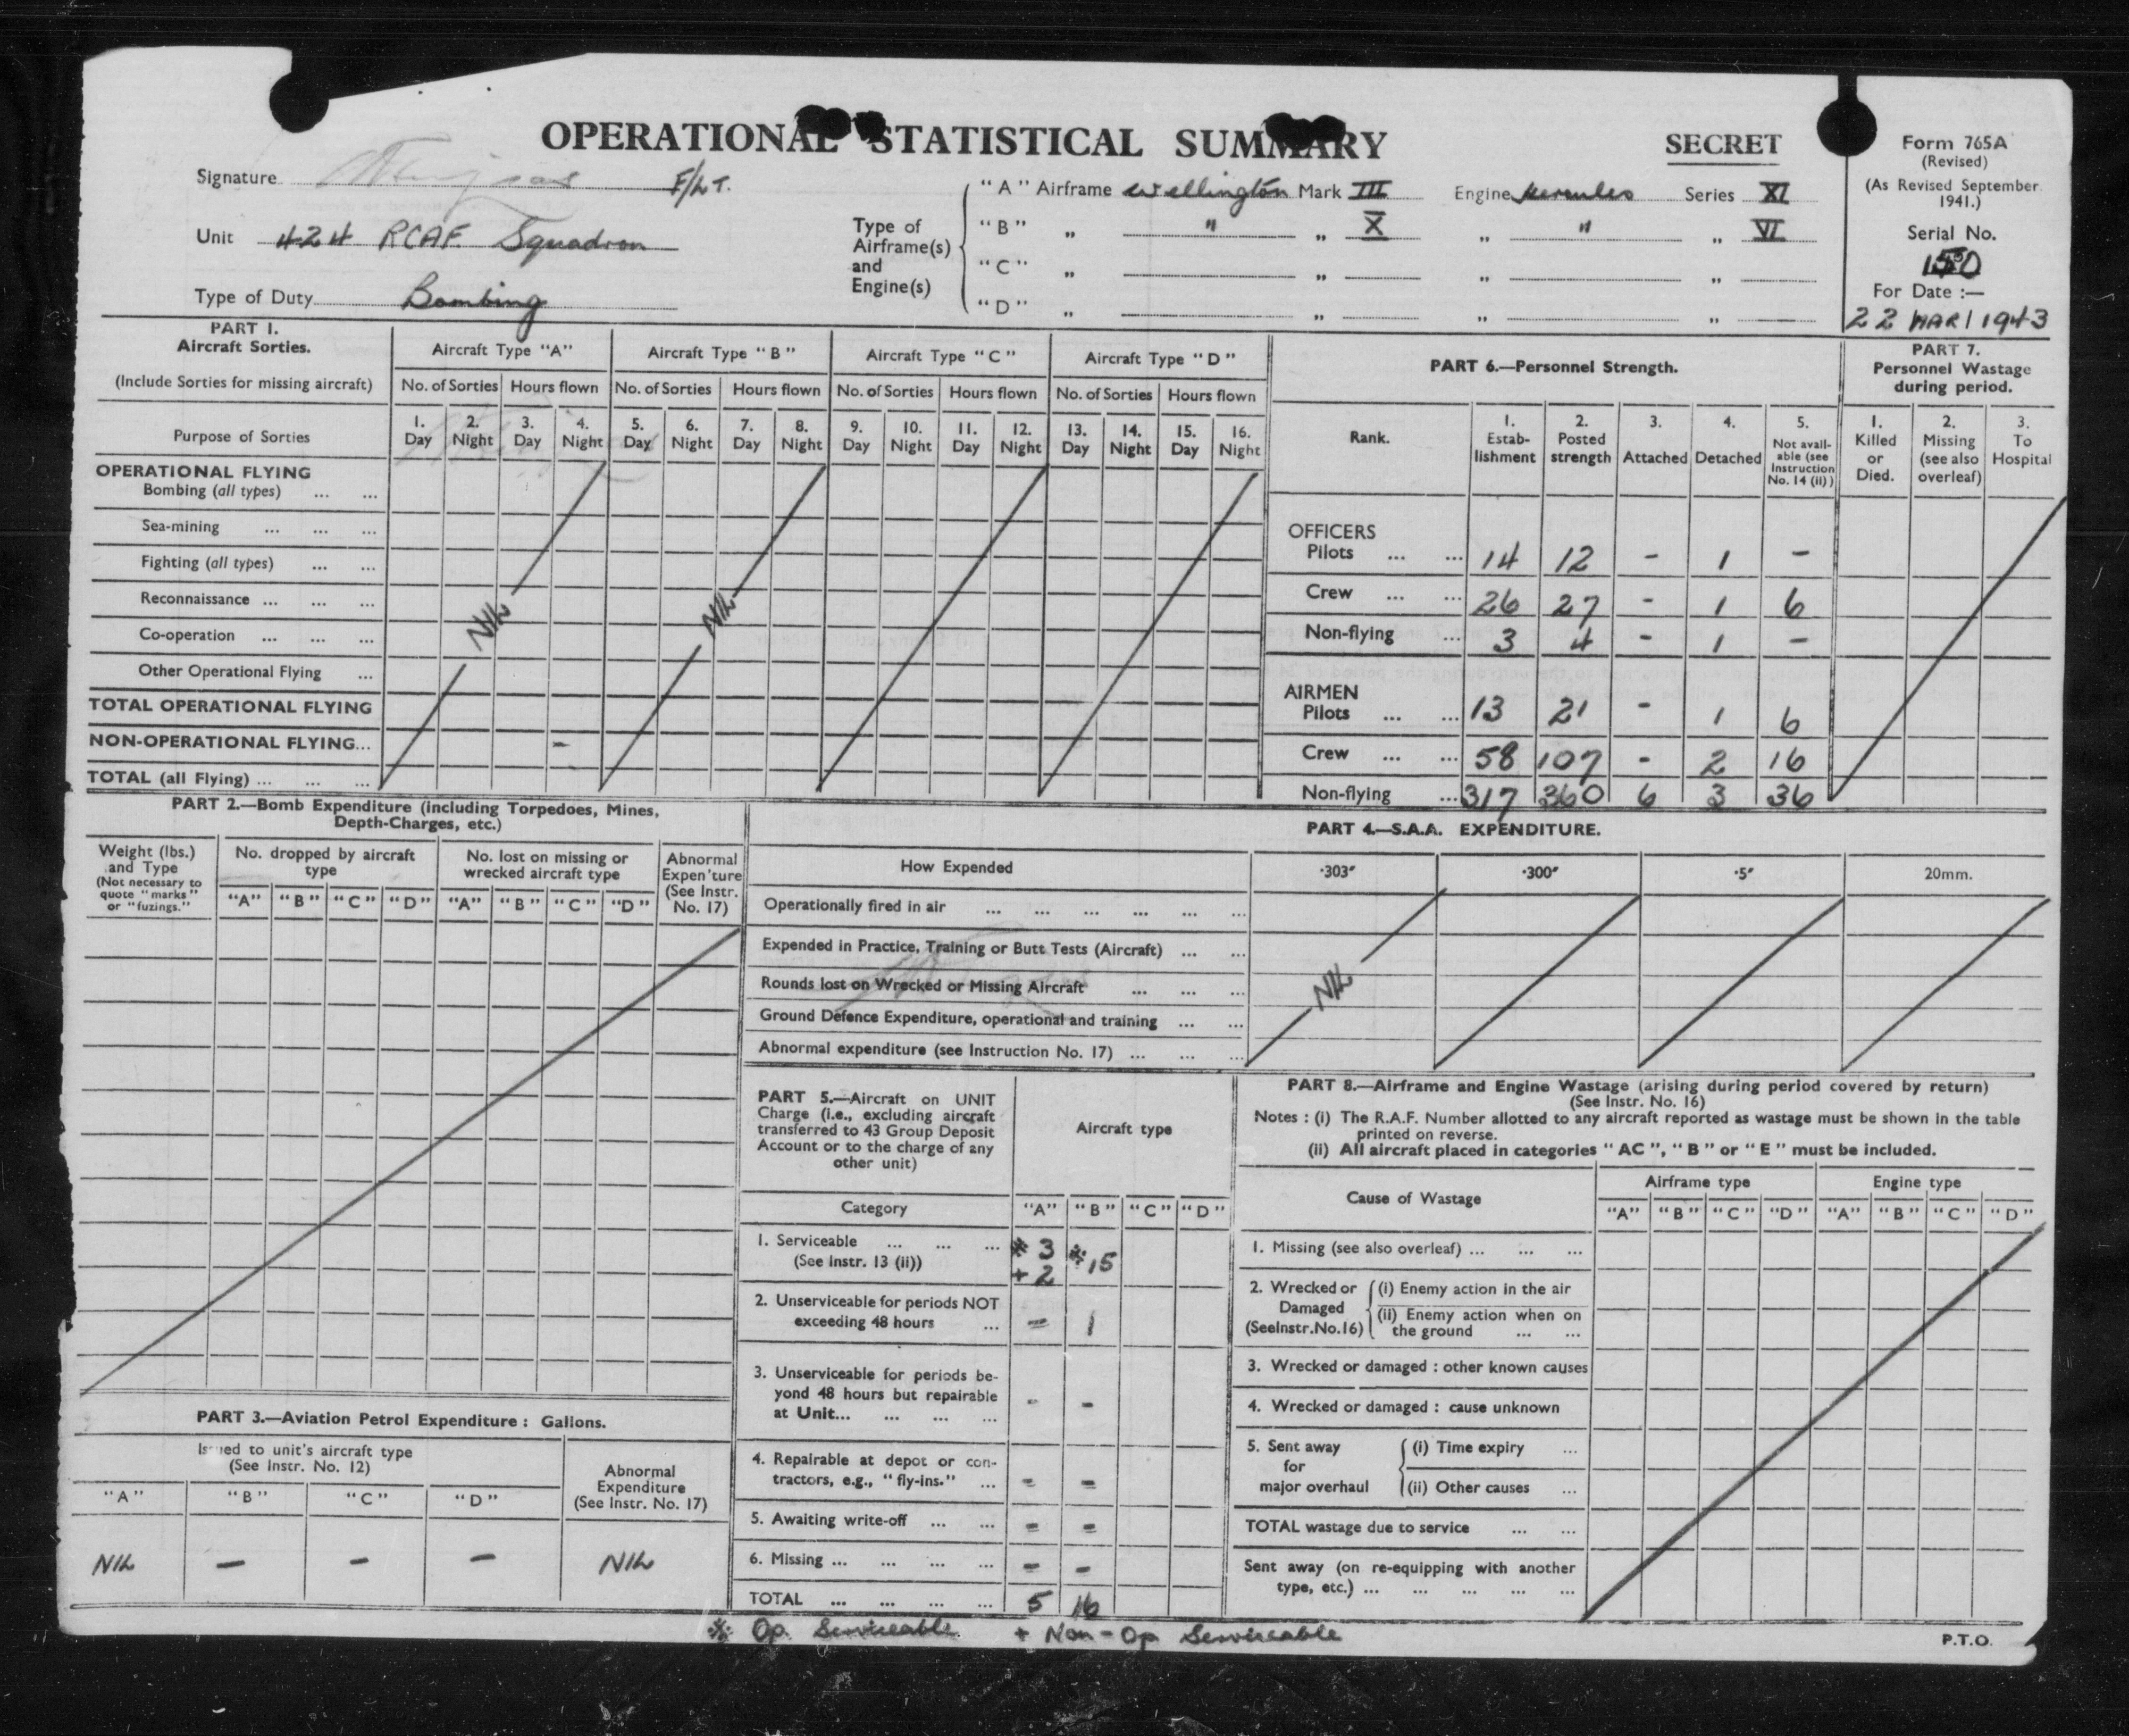 OPERATIONAL STATISTICAL SUMMARY
SECRET
Form 765A
(Revised)
(As Revised September 1941.)
Serial No.
For Date :—
22 MAR 1943
Signature F/LT.
Unit 424 RCAF Squadron
Type of Duty Bombing
Type of Airframe(s) and Engine(s)
"A" Airframe Wellington Mark III Engine Hercules Series XI
"B" „ " „ X „ " „ VI
"C" „ „ „ „
"D" „ „ „ „
PART 1.
Aircraft Sorties.
(Include Sorties for missing aircraft)
Aircraft Type "A" Aircraft Type "B" Aircraft Type "C" Aircraft Type "D"
No. of Sorties Hours flown No. of Sorties Hours flown No. of Sorties Hours flown No. of Sorties Hours flown
Purpose of Sorties
1. Day 2. Night 3. Day 4. Night 5. Day 6. Night 7. Day 8. Night 9. Day 10. Night 11. Day 12. Night 13. Day 14. Night 15. Day 16. Night
OPERATIONAL FLYING
Bombing (all types) ... ...
Sea-mining ... ... ...
Fighting (all types) ... ...
Reconnaissance ... ... ...
Co-operation ... ... ...
Other Operational Flying ...
NIL NIL
TOTAL OPERATIONAL FLYING
NON-OPERATIONAL FLYING... -
TOTAL (all Flying) ... ... ...
PART 6.—Personnel Strength.
Rank. 1. Estab-lishment 2. Posted strength 3. Attached 4. Detached 5. Not avail-able (see Instruction No. 14 (ii))
OFFICERS
Pilots ... ... 14 12 - 1 -
Crew ... ... 26 27 - 1 6
Non-flying ... 3 4 - 1 -
AIRMEN
Pilots ... ... 13 21 - 1 6
Crew ... ... 58 107 - 2 16
Non-flying ... 317 360 6 3 36
PART 7.
Personnel Wastage during period.
1. Killed or Died. 2. Missing (see also overleaf) 3. To Hospital
PART 2.—Bomb Expenditure (including Torpedoes, Mines, Depth-Charges, etc.)
Weight (lbs.) and Type (Not necessary to quote "marks" or "fuzings."
No. dropped by aircraft type
No. lost on missing or wrecked aircraft type
Abnormal Expen'ture (See Instr. No. 17)
"A" "B" "C" "D" "A" "B" "C" "D"
PART 4.—S.A.A. EXPENDITURE.
How Expended ·303" ·300" ·5" 20mm.
Operationally fired in air ... ... ... ... ... ...
Expended in Practice, Training or Butt Tests (Aircraft) ... ...
Rounds lost on Wrecked or Missing Aircraft ... ... ...
Ground Defence Expenditure, operational and training ... ...
Abnormal expenditure (see Instruction No. 17) ... ... ...
NIL
PART 3.—Aviation Petrol Expenditure : Gallons.
Issued to unit's aircraft type
(See Instr. No. 12)
Abnormal Expenditure (See Instr. No. 17)
"A" "B" "C" "D"
NIL — — — NIL
PART 5.—Aircraft on UNIT Charge (i.e., excluding aircraft transferred to 43 Group Deposit Account or to the charge of any other unit)
Aircraft type
Category "A" "B" "C" "D"
1. Serviceable ... ... ... ※ 3 ※ 15
(See Instr. 13 (ii)) + 2
2. Unserviceable for periods NOT exceeding 48 hours ... - 1
3. Unserviceable for periods be-yond 48 hours but repairable at Unit... ... ... ... - -
4. Repairable at depot or con-tractors, e.g., "fly-ins." ... - -
5. Awaiting write-off ... ... - -
6. Missing ... ... ... ... - -
TOTAL ... ... ... ... 5 16
※ Op. Serviceable + Non-Op Serviceable
PART 8.—Airframe and Engine Wastage (arising during period covered by return)
(See Instr. No. 16)
Notes : (i) The R.A.F. Number allotted to any aircraft reported as wastage must be shown in the table printed on reverse.
(ii) All aircraft placed in categories "AC", "B" or "E" must be included.
Cause of Wastage Airframe type Engine type
"A" "B" "C" "D" "A" "B" "C" "D"
1. Missing (see also overleaf) ... ... ...
2. Wrecked or Damaged (SeeInstr.No.16)
(i) Enemy action in the air
(ii) Enemy action when on the ground ... ...
3. Wrecked or damaged : other known causes
4. Wrecked or damaged : cause unknown
5. Sent away for major overhaul
(i) Time expiry ...
(ii) Other causes ...
TOTAL wastage due to service ... ...
Sent away (on re-equipping with another type, etc.) ... ... ... ... ...
P.T.O.